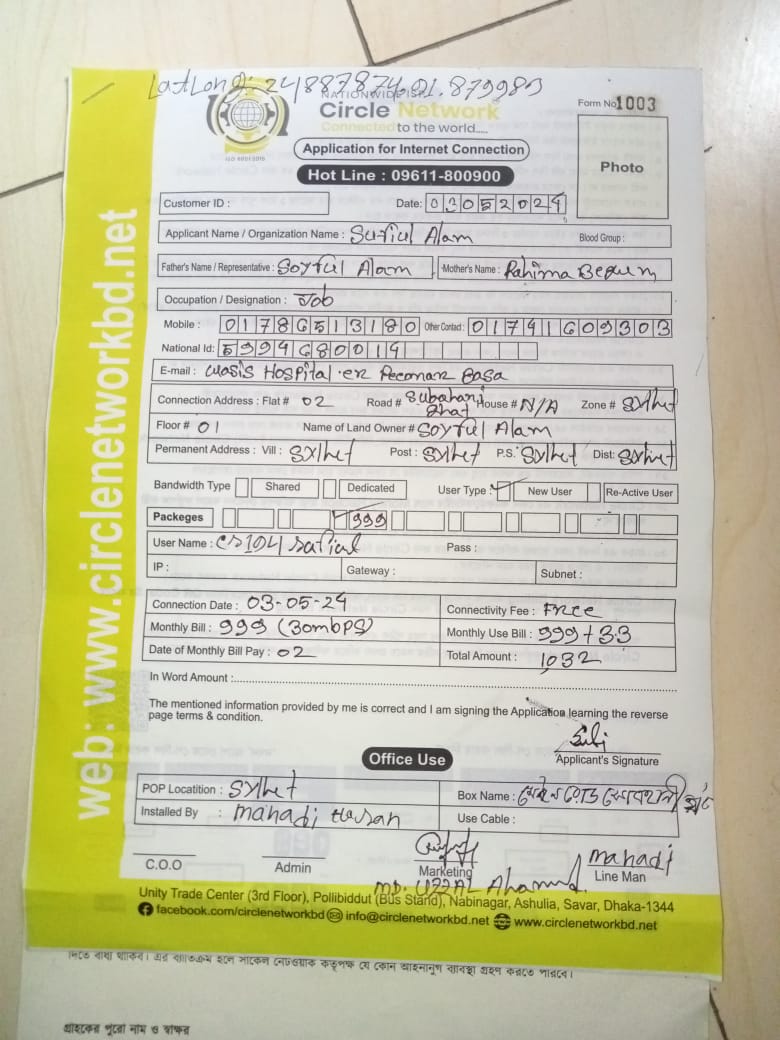 LatLong: 24887874, 91.879983
NATIONWIDE ISP
Circle Network
Connected to the world.....
ISO 9001:2015
Form No 1003
Application for Internet Connection
Hot Line : 09611-800900
Photo
Customer ID :
Date: 03052024
Applicant Name / Organization Name : Alam
Blood Group :
Father's Name / Representative : Soyful Alam
Mother's Name : Rahima Begum
Occupation / Designation : Job
Mobile : 01786513180 Other Contact : 01741609303
National Id: 5994680014
E-mail : Hospital er Basa
Connection Address : Flat # 02 Road # Subahani Ghat House # N/A Zone # Sylhet
Floor # 01 Name of Land Owner # Soyful Alam
Permanent Address : Vill : Sylhet Post : Sylhet P.S. Sylhet Dist: Sylhet
Bandwidth Type Shared Dedicated User Type : New User Re-Active User
Packeges 999
User Name : Pass :
IP : Gateway : Subnet :
Connection Date : 03-05-24 Connectivity Fee : Free
Monthly Bill : 999 (30mbps) Monthly Use Bill : 999 + 33
Date of Monthly Bill Pay : 02 Total Amount : 1032
In Word Amount :
The mentioned information provided by me is correct and I am signing the Application learning the reverse
page terms & condition.
Applicant's Signature
Office Use
POP Locatition : Sylhet Box Name :
Installed By : Mahadi Hasan Use Cable :
C.O.O Admin Marketing Line Man
mahadi
MD. UZZAL Ahamed
Unity Trade Center (3rd Floor), Pollibiddut (Bus Stand), Nabinagar, Ashulia, Savar, Dhaka-1344
facebook.com/circlenetworkbd info@circlenetworkbd.net www.circlenetworkbd.net
web: www.circlenetworkbd.net
দিতে বাধ্য থাকিব। এর ব্যতিক্রম হলে সার্কেল নেটওয়ার্ক কতৃপক্ষ যে কোন আইনানুগ ব্যবস্থা গ্রহণ করতে পারবে।
গ্রাহকের পুরো নাম ও স্বাক্ষর